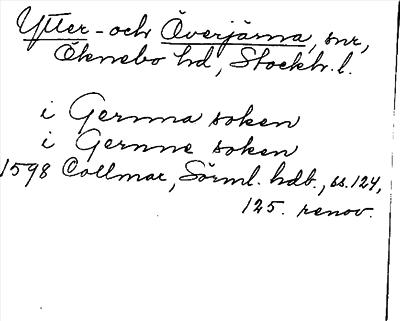 Ytter- och Överjärna, snr,
Öknebo hd, Stockh. l.
i Gernma soken
i Gernne soken
1598 Collmar, Sörml. hdb., ss. 124,
125. renov.